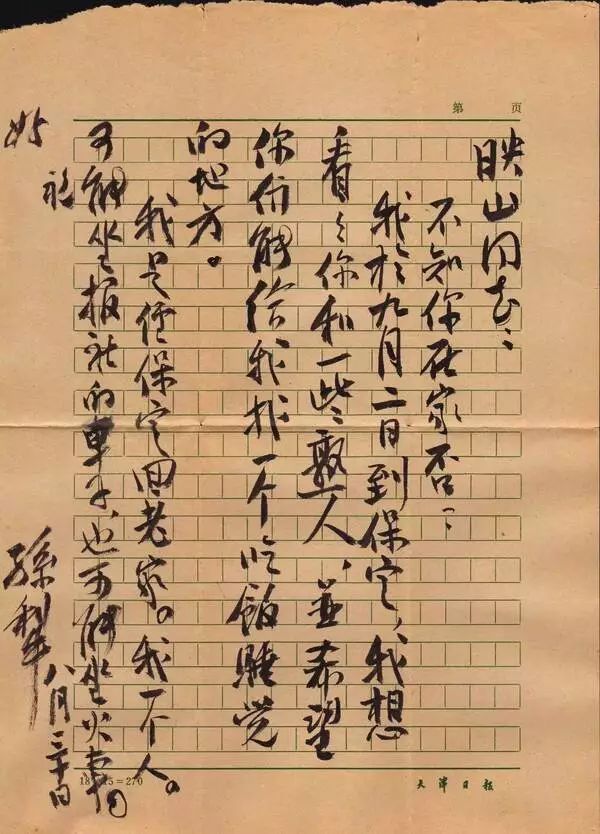 第 页
映山同志：
不知你在家否：
我於九月二日到保定，我想
看々你和一些熟人，並希望
你们能给我找一个吃饭睡觉
的地方。
我是经保定回老家。我一个人。
可能坐报社的車子，也可能坐火車。
祝
好
孫犁
八月三十日
18×15=270
天津日报